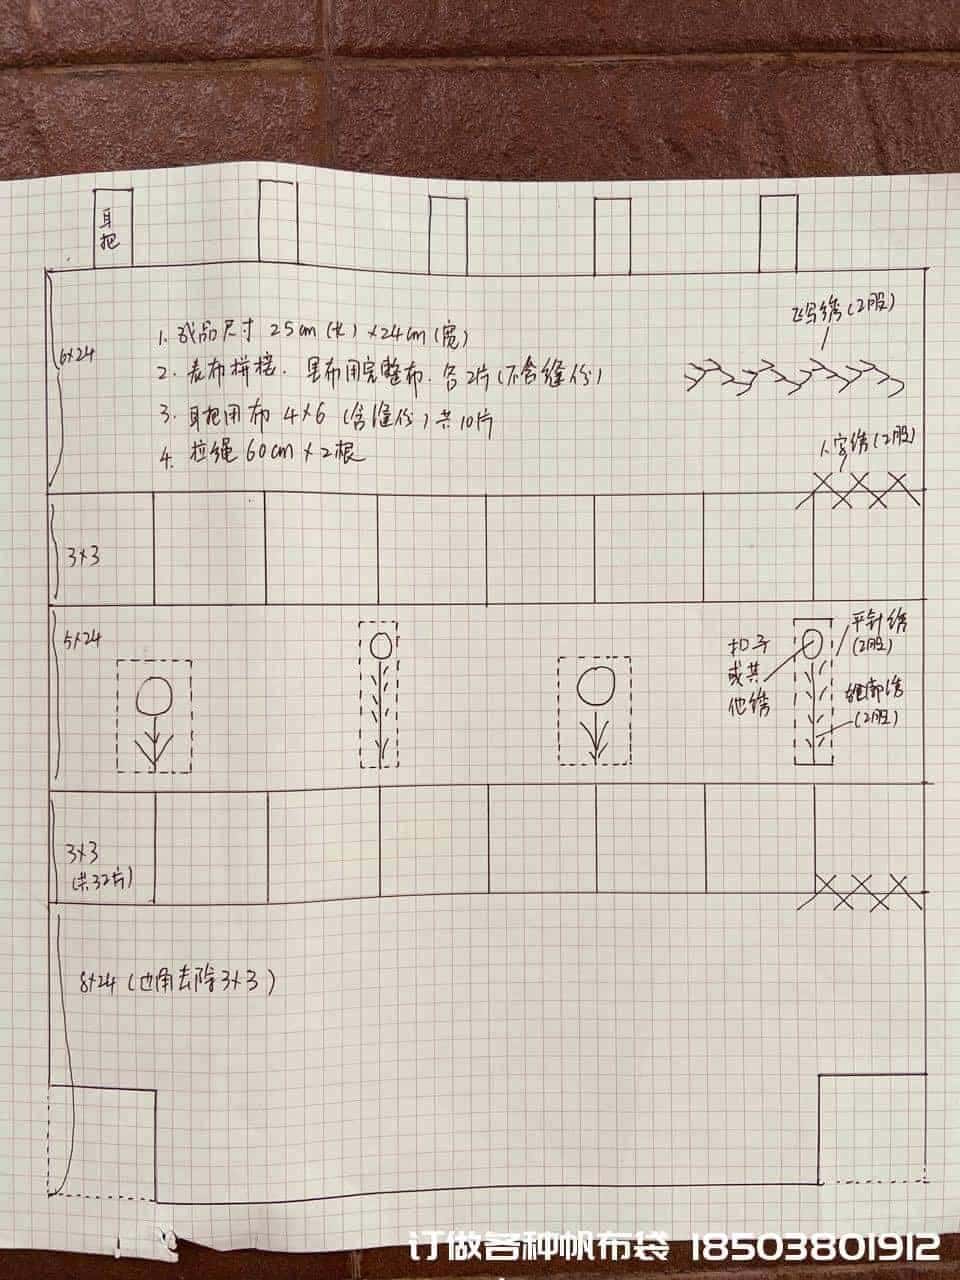 耳
把
飞鸟绣(2股)
6×24
1. 成品尺寸 25cm(长)×24cm(宽)
2. 表布拼接. 里布用完整布. 各2片(不含缝份)
3. 耳把用布 4×6 (含缝份)共10片
4. 拉绳60cm×2根
人字绣(2股)
3×3
5×24
扣子
或其
他绣
平针绣
(2股)
(2股)
3×3
(共32片)
8×24(边角去除3×3)
订做各种帆布袋 18503801912